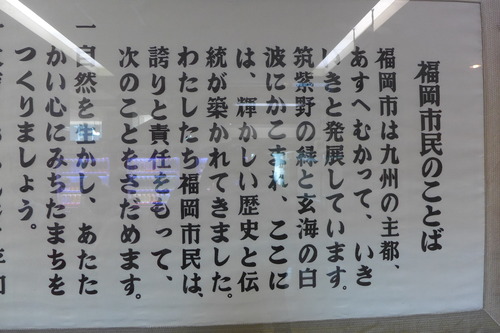 福岡市民のことば
福岡市は九州の主都、
あすへむかって、いき
いきと発展しています。
筑紫野の緑と玄海の白
波にかこまれ、ここに
は、輝かしい歴史と伝
統が築かれてきました。
わたしたち福岡市民は、
誇りと責任をもって、
次のことをさだめます。
一自然を生かし、あたた
かい心にみちたまちを
つくりましょう。